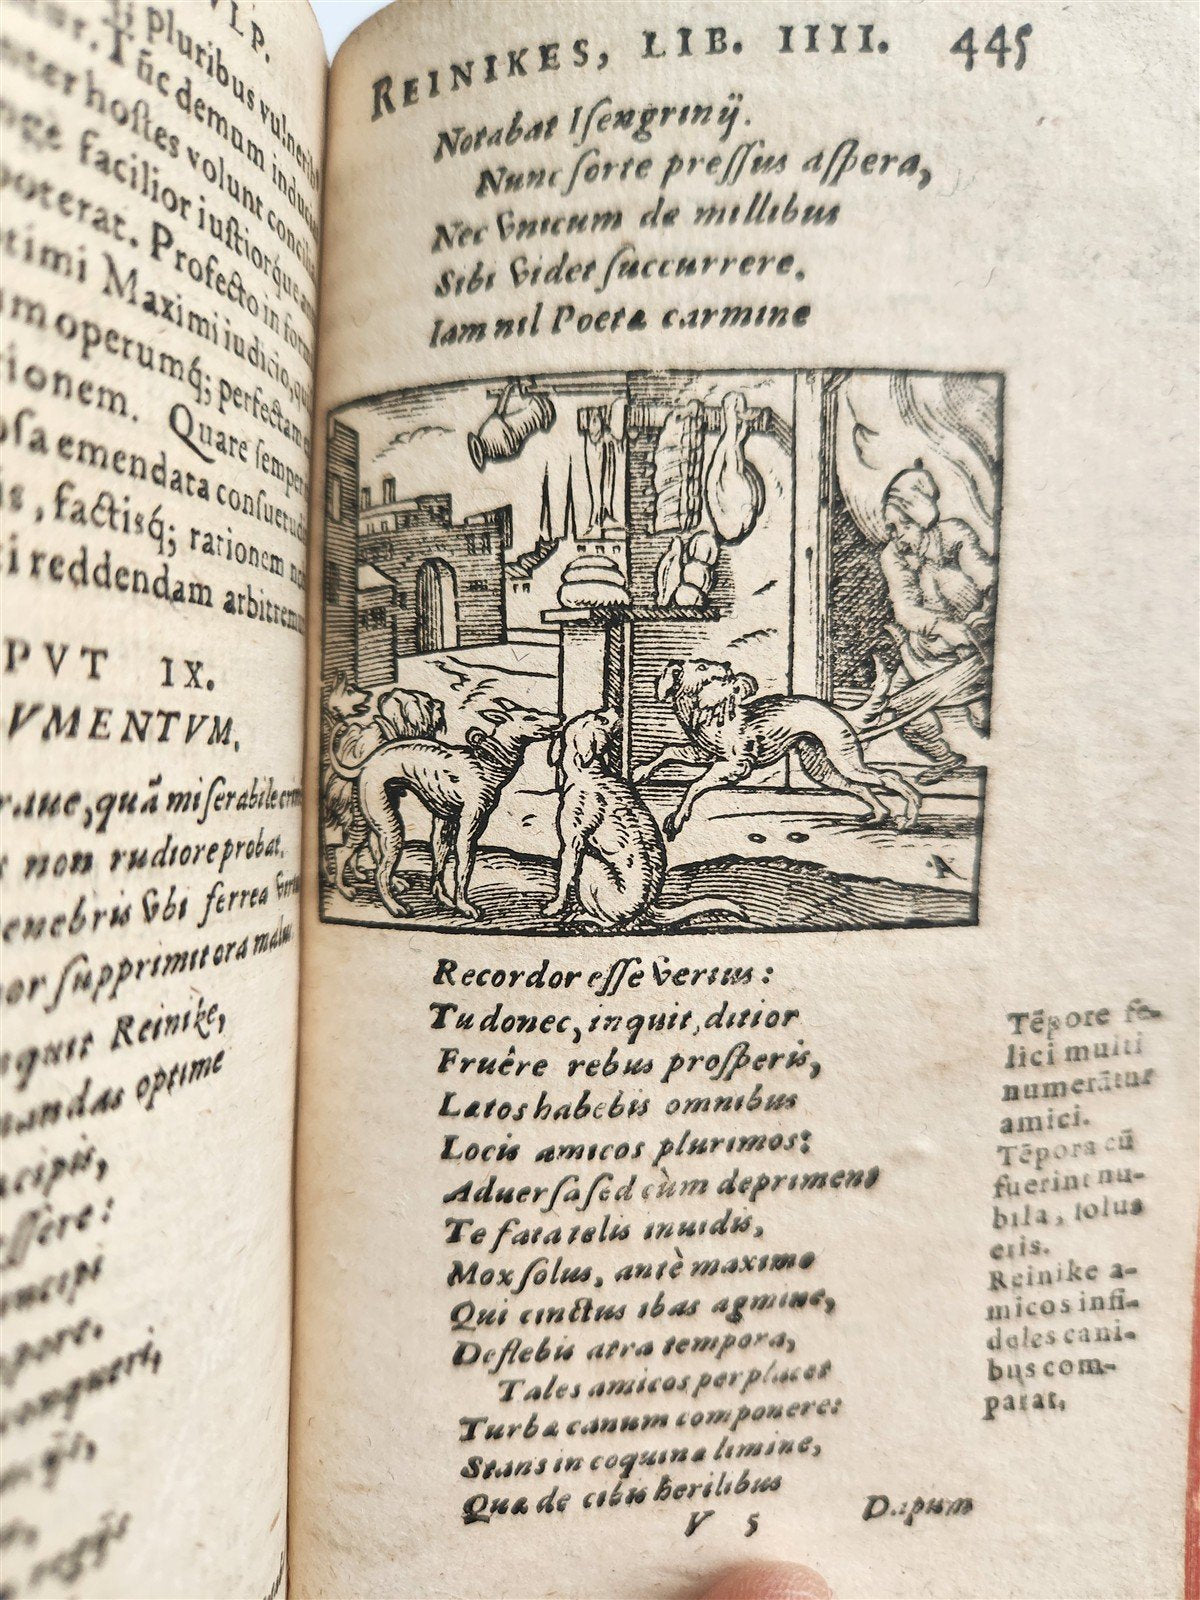 VLP.
pluribus vulneribꝰ
Tūc demum inducias
hostes volunt concilia
facilior iustiorq́ue
poterat. Profecto in formi
timi Maximi iudicio, qui
operumq́; perfectam
rionem. Quare semper
osa emendata consuetudi
is, factisq́; rationem non
i reddendam arbitremur
PVT IX.
VMENTVM.
quā miserabile crim
non rudiore probat.
enebris vbi ferrea
or supprimit ora malus
nquit Reinike,
mandas optime
ncipis,
ssere:
incipi
pore.
conqueri,
REINIKES, LIB. IIII. 445
Notabat Isengrinij.
Nunc sorte pressus aspera,
Nec vnicum de millibus
Sibi videt succurrere.
Iam nil Poeta carmine
A
Recordor esse verius:
Tu donec, inquit, ditior
Fruêre rebus prosperis,
Latos habebis omnibus
Locis amicos plurimos:
Aduersa sed cùm depriment
Te fata telis inuidis,
Mox solus, antè maximo
Qui cinctus ibas agmine,
Deflebis atra tempora,
Tales amicos perplacet
Turba canum componere:
Stans in coquina limine,
Qua de cibis herilibus
V 5
Dapum
Tēpore fe-
lici multi
numerātur
amici.
Tēpora cū
fuerint nu-
bila, solus
eris.
Reinike a-
micos infi-
deles cani-
bus com-
parat.